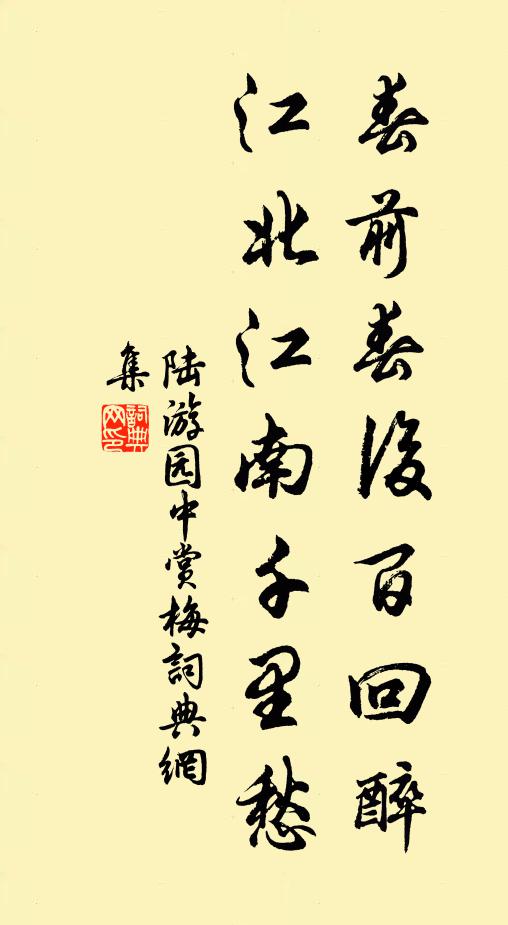 春前春後百回醉
江北江南千里愁
陆游园中赏梅詞典網
集
詞典網印